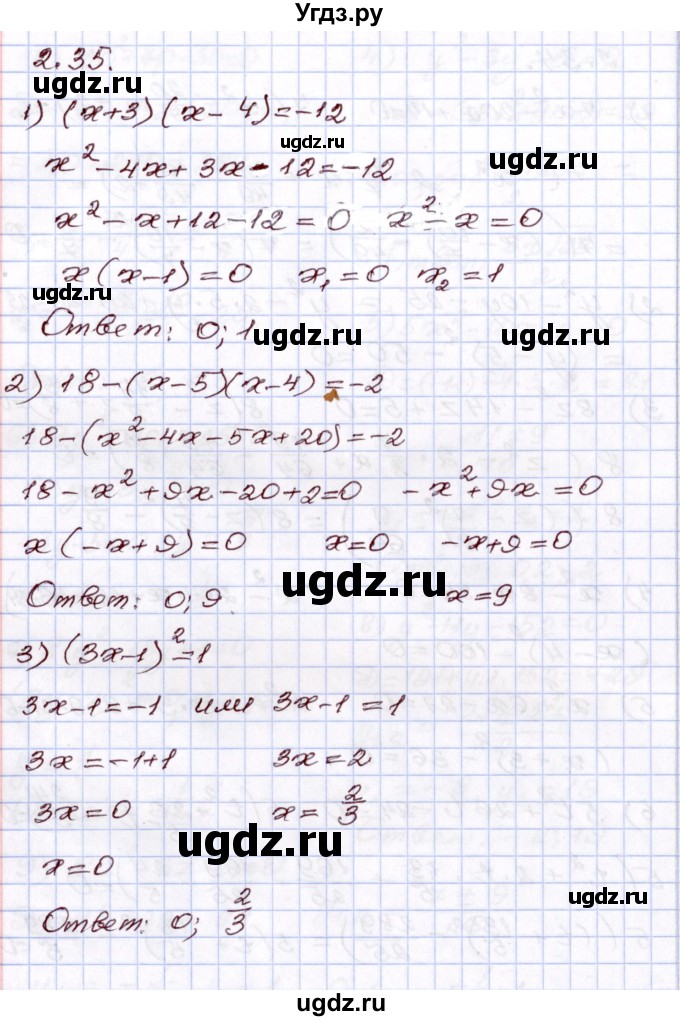 Угдз.ру
2.35.
ugdz.ru
1) (x+3)(x-4)=-12
ugdz.ru
x²-4x+3x-12=-12
ugdz.ru
x²-x+12-12=0 x²-x=0
x(x-1)=0 x₁=0 x₂=1
ugdz.ru
Ответ: 0; 1
ugdz.ru
2) 18-(x-5)(x-4)=-2
18-(x²-4x-5x+20)=-2
18-x²+9x-20+2=0 -x²+9x=0
x(-x+9)=0 x=0 -x+9=0
Ответ: 0; 9. x=9
ugdz.ru
3) (3x-1)²=1
3x-1=-1 или 3x-1=1
3x=-1+1 3x=2
3x=0 x=2/3
ugdz.ru
x=0
Ответ: 0; 2/3
ugdz.ru
ugdz.ru